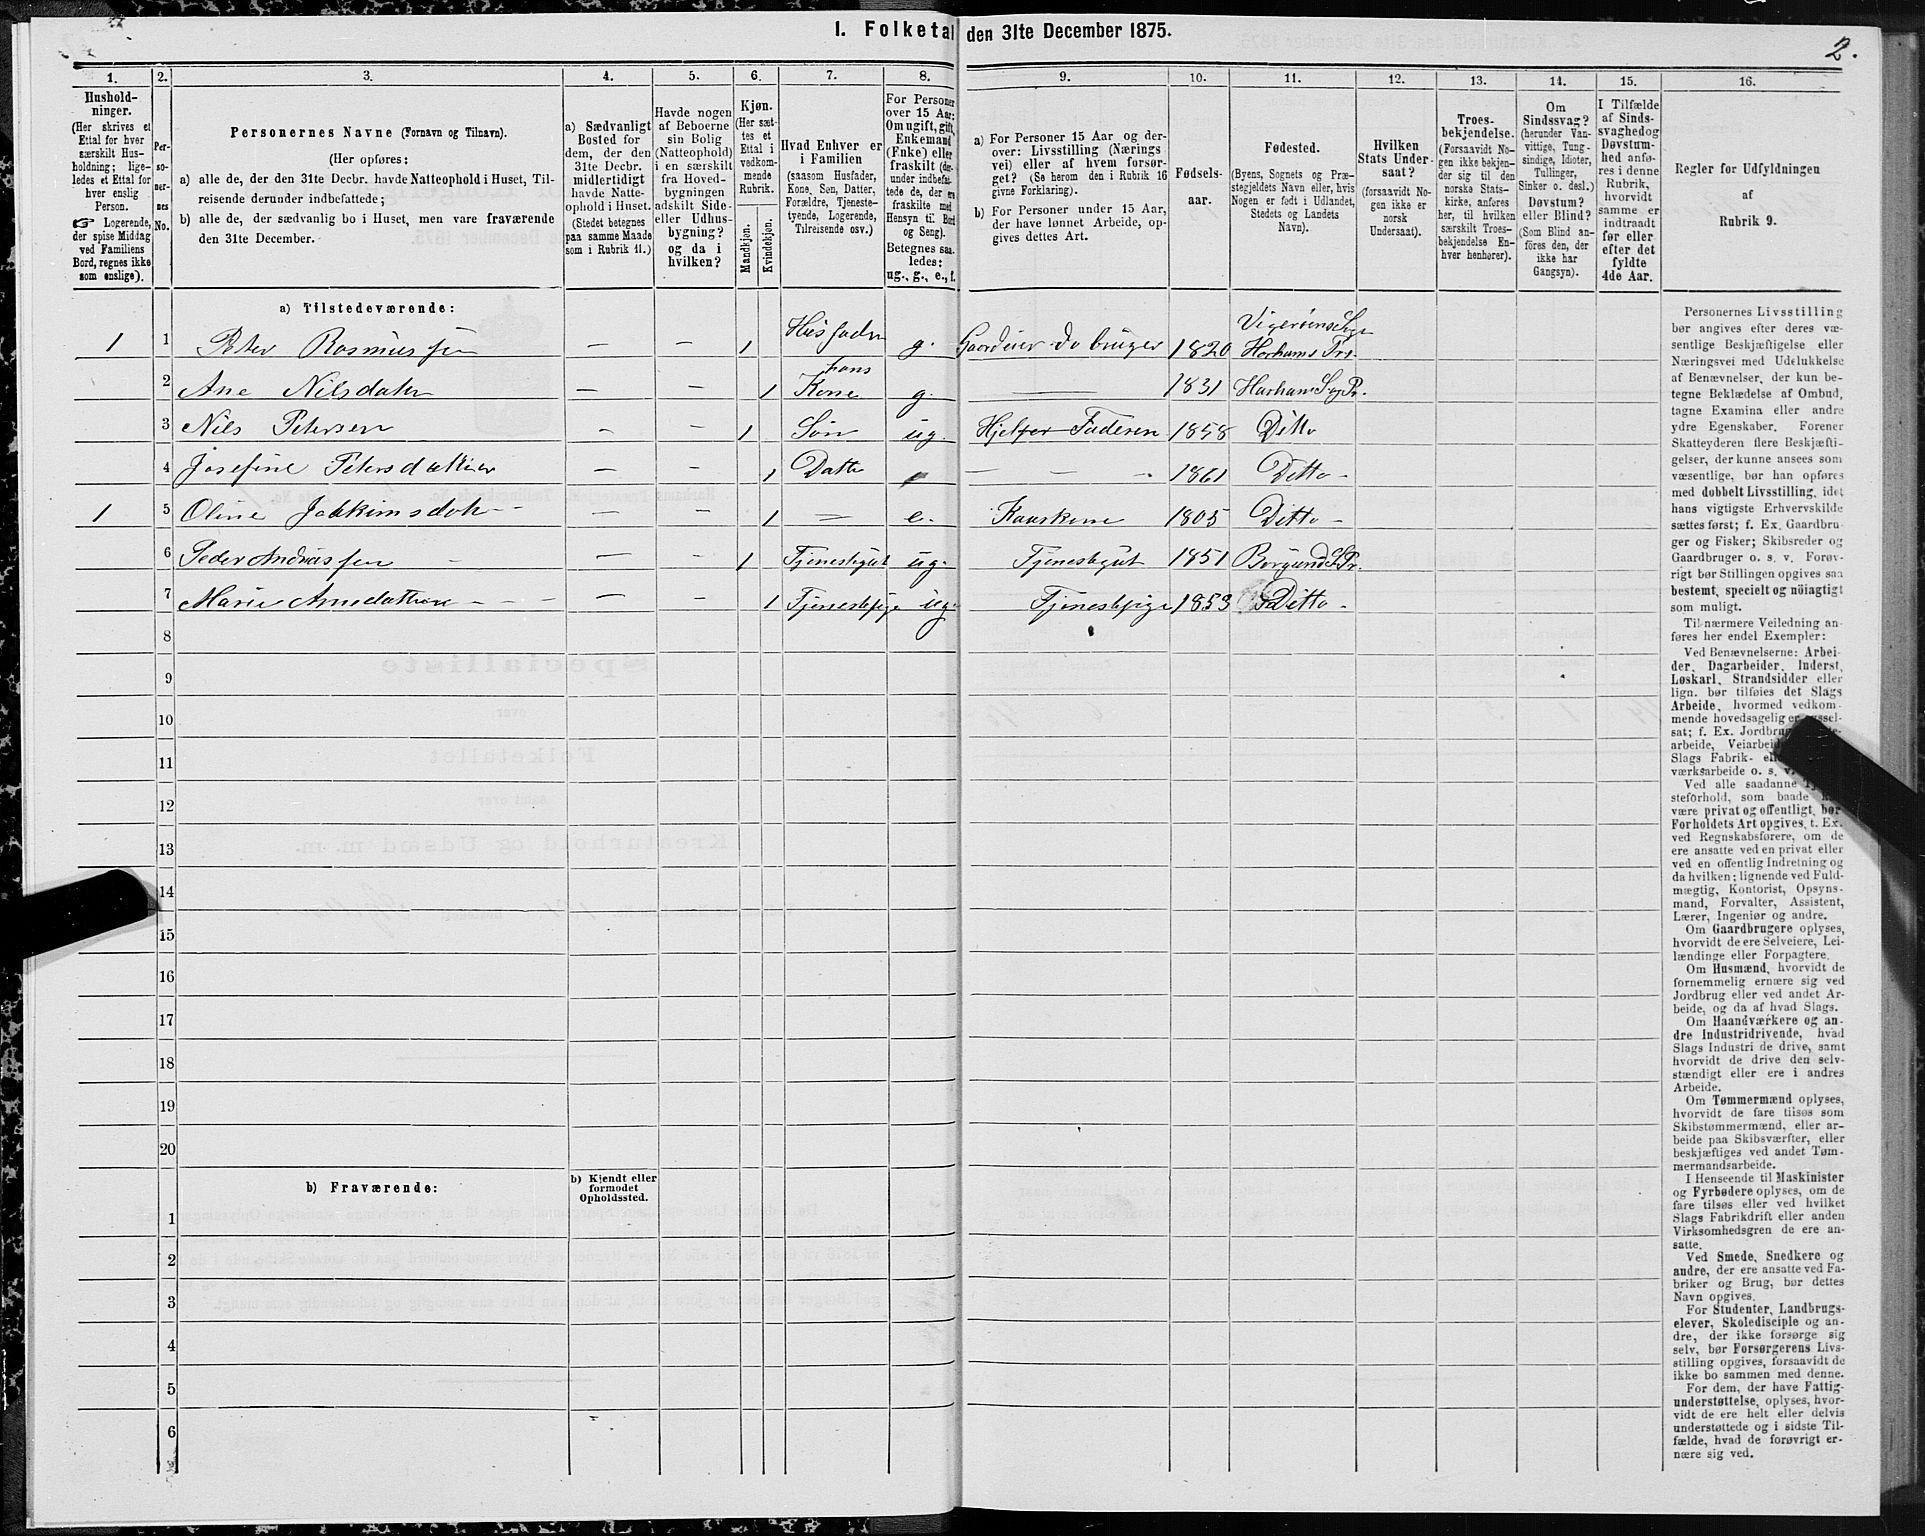 I. Folketal den 31te December 1875.
2.
1. 2. 3. 4. 5. 6. 7. 8. 9. 10. 11. 12. 13. 14. 15. 16.
Hushold-
ninger.
(Her skrives et
Ettal for hver
særskilt Hus-
holdning; lige-
ledes et Ettal for
hver enslig
Person.
☞ Logerende,
der spise Middag
ved Familiens
Bord, regnes ikke
som enslige).
Per-
so-
ner-
nes
No.
Personernes Navne (Fornavn og Tilnavn).
(Her opføres:
a) alle de, der den 31te Decbr. havde Natteophold i Huset, Til-
reisende derunder indbefattede;
b) alle de, der sædvanlig bo i Huset, men vare fraværende
den 31te December.
a) Sædvanligt
Bosted for
dem, der den
31te Decbr.
midlertidigt
havde Natte-
ophold i Huset.
(Stedet betegnes
paa samme Maade
som i Rubrik 11.)
Havde nogen
af Beboerne
sin Bolig
(Natteophold)
i en særskilt
fra Hoved-
bygningen
adskilt Side-
eller Udhus-
bygning?
og da i
hvilken?
Kjøn.
(Her sæt-
tes et
Ettal i
vedkom-
mende
Rubrik.
Mandkjøn.
Kvindekjøn.
Hvad Enhver er
i Familien
(saasom Husfader,
Kone, Søn, Datter,
Forældre, Tjeneste-
tyende, Logerende,
Tilreisende osv.)
For Personer
over 15 Aar:
Om ugift, gift,
Enkemand
(Enke) eller
fraskilt (der-
under indbefat-
tede de, der ere
fraskilte med
Hensyn til Bord
og Seng).
Betegnes saa-
ledes:
ug., g., e., f.
a) For Personer 15 Aar og der-
over: Livsstilling (Nærings-
vei) eller af hvem forsør-
get? (Se herom den i Rubrik 16
givne Forklaring).
b) For Personer under 15 Aar,
der have lønnet Arbeide, op-
gives dettes Art.
Fødsels-
aar.
Fødested.
(Byens, Sognets og Præ-
stegjeldets Navn eller, hvis
Nogen er født i Udlandet,
Stedets og Landets
Navn).
Hvilken
Stats Under-
saat?
(forsaavidt No-
gen ikke er
norsk
Undersaat).
Troes-
bekjendelse.
(Forsaavidt No-
gen ikke bekjen-
der sig til den
norske Stats-
kirke, anføres
her, til hvilken
særskilt Troes-
bekjendelse En-
hver henhører).
Om
Sindssvag?
(herunder Van-
vittige, Tung-
sindige, Idioter,
Tullinger,
Sinker o. desl.)
Døvstum?
eller Blind?
(Som Blind an-
føres den, der
ikke har
Gangsyn).
I Tilfælde
af Sinds-
svaghed og
Døvstum-
hed anfø-
res i denne
Rubrik,
hvorvidt
samme er
indtraadt
før eller
efter det
fyldte
4de Aar.
Regler for Udfyldningen
af
Rubrik 9.
a) Tilstedeværende:
1 1 Peter Rasmussen — — 1 Husfader g. Gaardeier do bruger 1820 Vigerøens Sogn Harhams Prs.
2 Ane Nilsdatter — — 1 hans Kone g. — 1831 Harhams Sog Pr.
3 Nils Petersen — — 1 Søn ug. Hjelper Faderen 1858 Ditto
4 Josefine Petersdatter — — 1 Datter — — 1861 Ditto -
1 5 Oline Jakkimsdatr — — 1 — e. 1805 Ditto -
6 Peder Andreassen — — 1 Tjenestegut ug. Tjenestegut 1851 Borgund S Pr.
7 Marie — — 1 Tjenestepige ug. Tjenestepige 1853 Ditto -
8
9
10
11
12
13
14
15
16
17
18
19
20
b) Fraværende:
b) Kjendt eller
formodet
Opholdssted.
1
2
3
4
5
6
Personernes Livsstilling
bør angives efter deres væ-
sentlige Beskjæftigelse eller
Næringsvei med Udelukkelse
af Benævnelser, der kun be-
tegne Beklædelse af Ombud,
tagne Examina eller andre
ydre Egenskaber. Forener
Skatteyderen flere Beskjæfti-
gelser, der kunne ansees som
væsentlige, bør han opføres
med dobbelt Livsstilling, idet
hans vigtigste Erhvervskilde
sættes først; f. Ex. Gaardbru-
ger og Fisker; Skibsreder og
Gaardbruger o. s. v. Forøv-
rigt bør Stillingen opgives saa
bestemt, specielt og nöiagtigt
som muligt.
Til nærmere Veiledning an-
føres her endel Exempler:
Ved Benævnelserne: Arbei-
der, Dagarbeider, Inderst,
Løskarl, Strandsidder eller
lign. bør tilføies det Slags
Arbeide, hvormed vedkom-
mende hovedsagelig er
sat; f. Ex. Jordbru
arbeide, Veiarbeid
Slags Fabrik-
værksarbeide o. s. v.
Ved alle saadanne
steforhold, som baade
være privat og offentligt, bør
Forholdets Art opgives, t. Ex.
ved Regnskabsførere, om de
ere ansatte ved en privat eller
ved en offentlig Indretning og
da hvilken; lignende ved Fuld-
mægtig, Kontorist, Opsyns-
mand, Forvalter, Assistent,
Lærer, Ingeniør og andre.
Om Gaardbrugere oplyses,
hvorvidt de ere Selveiere, Lei-
lændinge eller Forpagtere.
Om Husmænd, hvorvidt de
fornemmelig ernære sig ved
Jordbrug eller ved andet Ar-
beide, og da af hvad Slags.
Om Haandværkere og an-
dre Industridrivende, hvad
Slags Industri de drive, samt
hvorvidt de drive den selv-
stændigt eller ere i andres
Arbeide.
Om Tømmermænd oplyses,
hvorvidt de fare tilsøs som
Skibstømmermænd, eller ar-
beide paa Skibsværfter, eller
beskjæftiges ved andet Tøm-
mermandsarbeide.
I Henseende til Maskinister
og Fyrbødere oplyses, om de
fare tilsøs eller ved hvilket
Slags Fabrikdrift eller anden
Virksomhedsgren de ere an-
satte.
Ved Smede, Snedkere og
andre, der ere ansatte ved Fa-
briker og Brug, bør dettes
Navn opgives.
For Studenter, Landbrugs-
elever, Skoledisciple og an-
dre, der ikke forsørge sig
selv, bør Forsørgerens Livs-
stilling opgives, forsaavidt de
ikke bo sammen med denne.
For dem, der have Fattig-
understøttelse, oplyses, hvor-
vidt de ere helt eller delvis
understøttede og i sidste Til-
fælde, hvad de forøvrigt er-
nære sig ved.